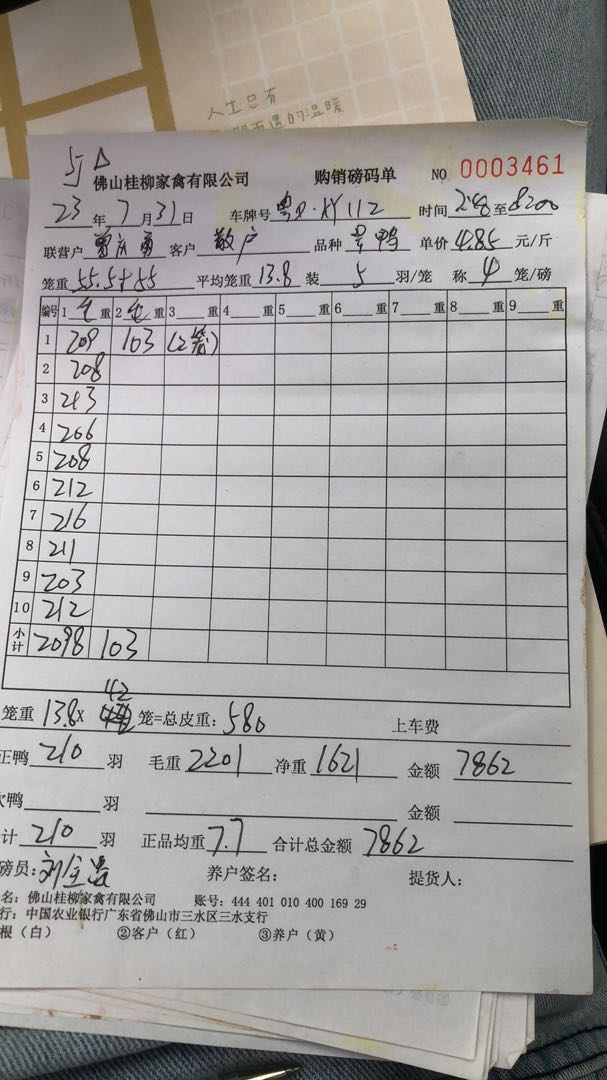 人生总有
的温暖
佛山桂柳家禽有限公司 购销磅码单 NO 0003461
23年7月31日 车牌号 时间 至
联营户 客户 散户 品种 鸭 单价4.85元/斤
笼重55.5+55 平均笼重13.8 装5羽/笼 称4笼/磅
编号 1毛重 2毛重 3重 4重 5重 6重 7重 8重 9重
1 209 103 (2笼)
2 208
3 213
4 206
5 208
6 212
7 216
8 211
9 203
10 212
小计 2098 103
42
笼重13.8X 笼=总皮重:580 上车费
正鸭210羽 毛重2201 净重1621 金额7862
次鸭 羽 金额
计210羽 正品均重7.7 合计总金额7862
磅员:刘 养户签名: 提货人:
名:佛山桂柳家禽有限公司 账号:444 401 010 400 169 29
行:中国农业银行广东省佛山市三水区三水支行
根(白) ②客户(红) ③养户(黄)